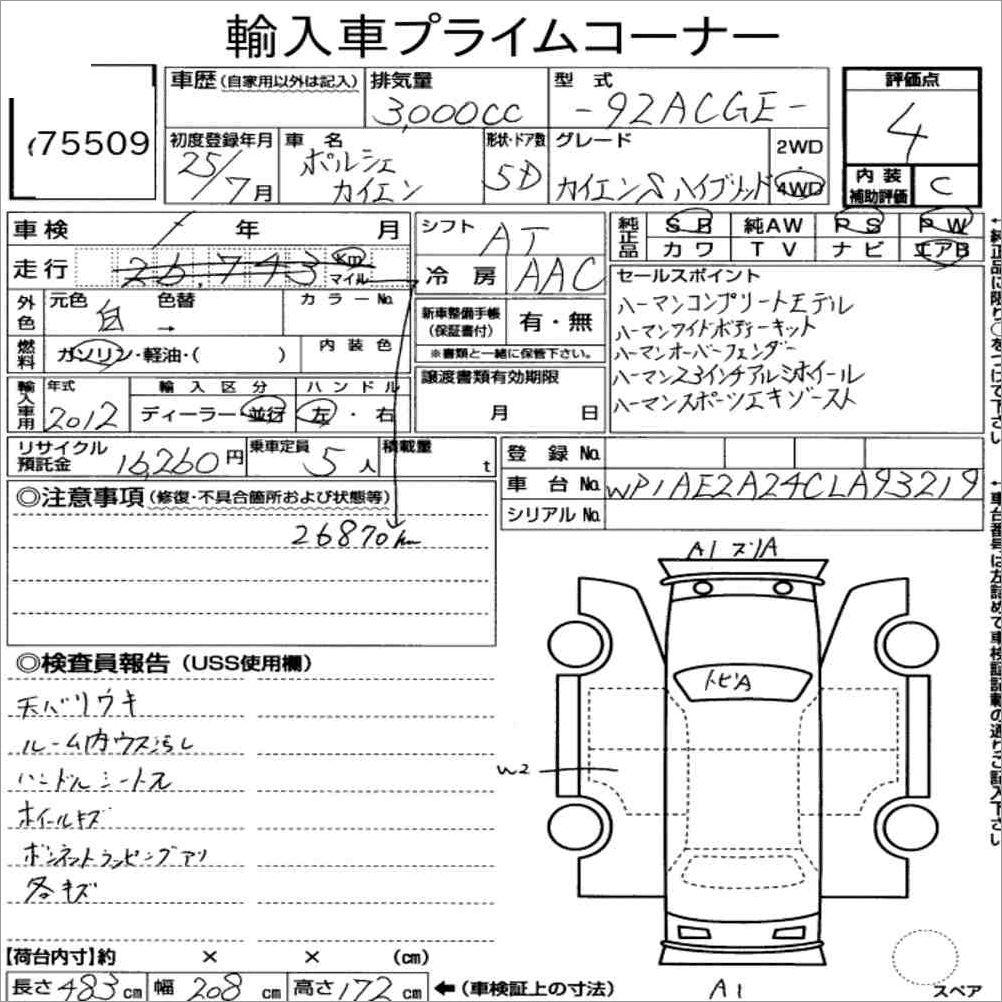 輸入車プライムコーナー
75509
車歴(自家用以外は記入)
排気量
3,000cc
型式
-92ACGE-
評価点
4
初度登録年月
25/7月
車名
ポルシェ
カイエン
形状・ドア数
5D
グレード
カイエンSハイブリッド
2WD
4WD
内装
補助評価
C
車検 / 年 月
シフト
AT
純正品
SB 純AW PS PW
カワ TV ナビ エアB
走行 26,743 Km マイル
冷房
AAC
セールスポイント
ハーマンコンプリートモデル
ハーマンワイドボディーキット
ハーマンオーバーフェンダー
ハーマン23インチアルミホイール
ハーマンスポーツエキゾースト
外色
元色 白 色替 → カラーNo.
新車整備手帳
(保証書付)
有・無
※書類と一緒に保管下さい。
燃料
ガソリン・軽油・( )
内装色
輸入車用
年式
2012
輸入区分
ディーラー・並行
ハンドル
左・右
譲渡書類有効期限
月 日
リサイクル
預託金
16,260円
乗車定員 5人
積載量 t
登録No.
車台No. WP1AE2A24CLA93219
シリアルNo.
◎注意事項(修復・不具合箇所および状態等)
26870km
A1 スリA
トビA
W2
◎検査員報告(USS使用欄)
天バリウキ
ルーム内ウス汚し
ハンドルシートスレ
ホイールキズ
ボンネットラッピングアリ
各キズ
【荷台内寸】約 × × (cm)
長さ483cm 幅208cm 高さ172cm ←(車検証上の寸法)
A1
スペア
↑純正品に限り○をつけて下さい
↑車台番号は左詰めで車検証記載の通りご記入下さい